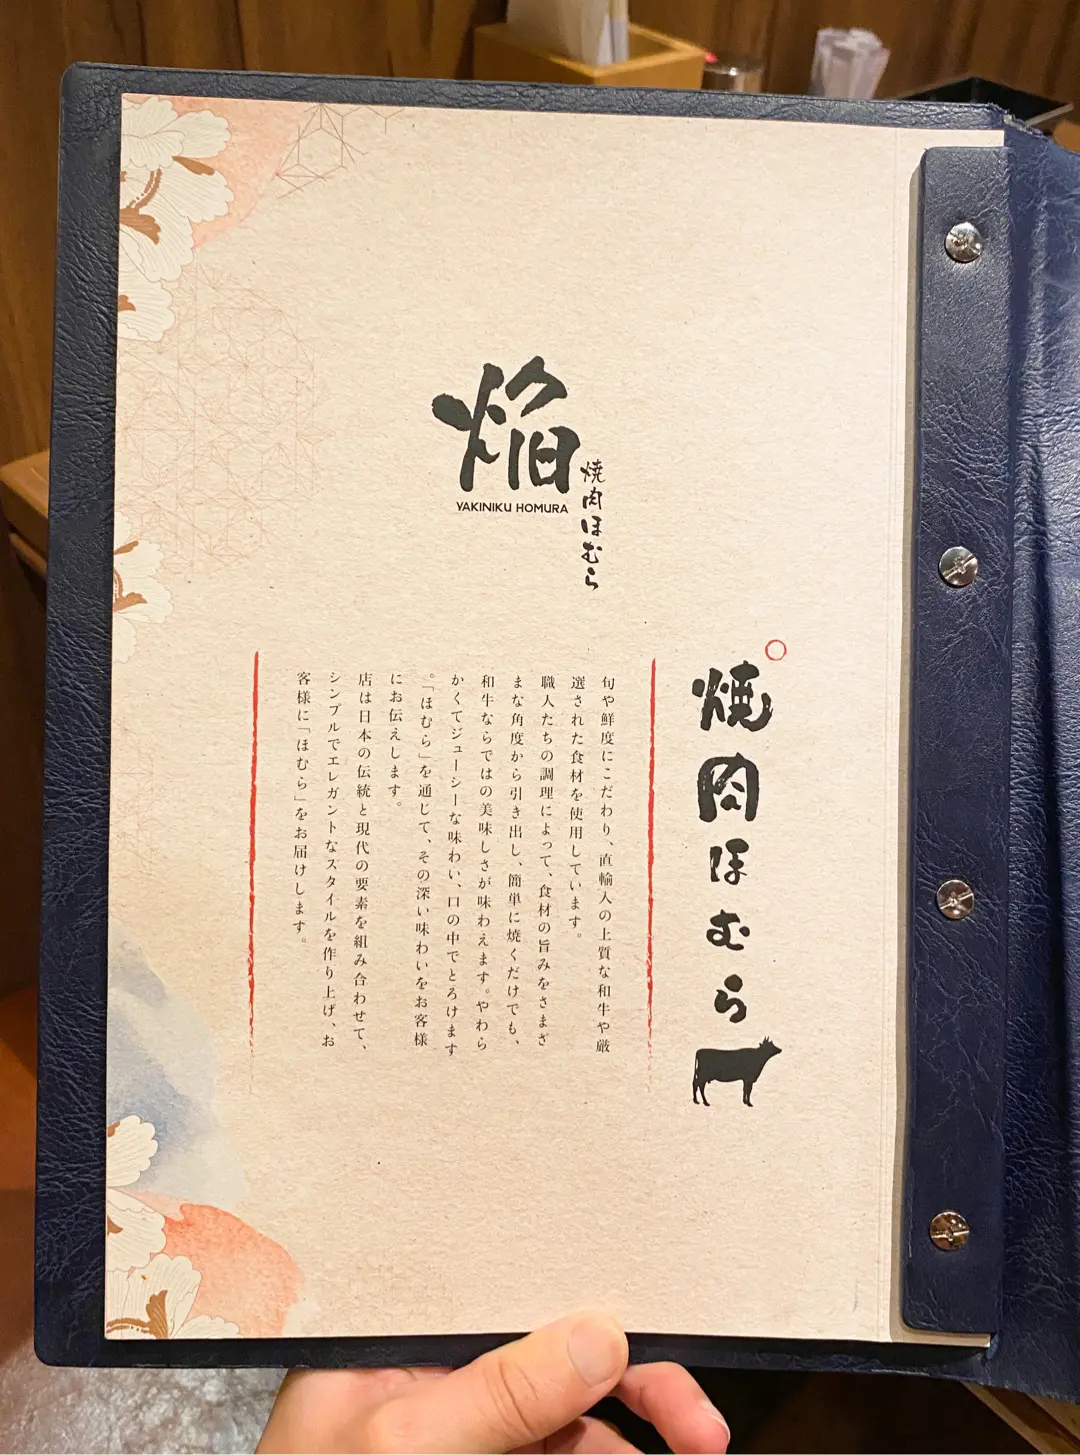 焔
YAKINIKU HOMURA
焼肉ほむら
焼肉ほむら
旬や鮮度にこだわり、直輸入の上質な和牛や厳
選された食材を使用しています。
職人たちの調理によって、食材の旨みをさまざ
まな角度から引き出し、簡単に焼くだけでも、
和牛ならではの美味しさが味わえます。やわら
かくてジューシーな味わい、口の中でとろけます
。「ほむら」を通じて、その深い味わいをお客様
にお伝えします。
店は日本の伝統と現代の要素を組み合わせて、
シンプルでエレガントなスタイルを作り上げ、お
客様に「ほむら」をお届けします。